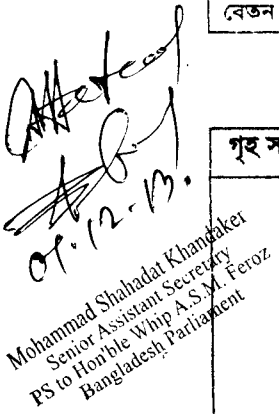 বেতন
Attested
01.12.13.
Mohammad Shahadat Khandaker
Senior Assistant Secretary
PS to Hon'ble Whip A.S.M. Feroz
Bangladesh Parliament
গৃহ স